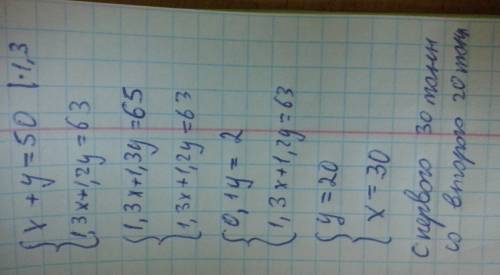 { x + y = 50 | · 1,3
{ 1,3x + 1,2y = 63
{ 1,3x + 1,3y = 65
{ 1,3x + 1,2y = 63
{ 0,1y = 2
{ 1,3x + 1,2y = 63
{ y = 20
{ x = 30
с первого 30 тонн
со второго 20 тонн